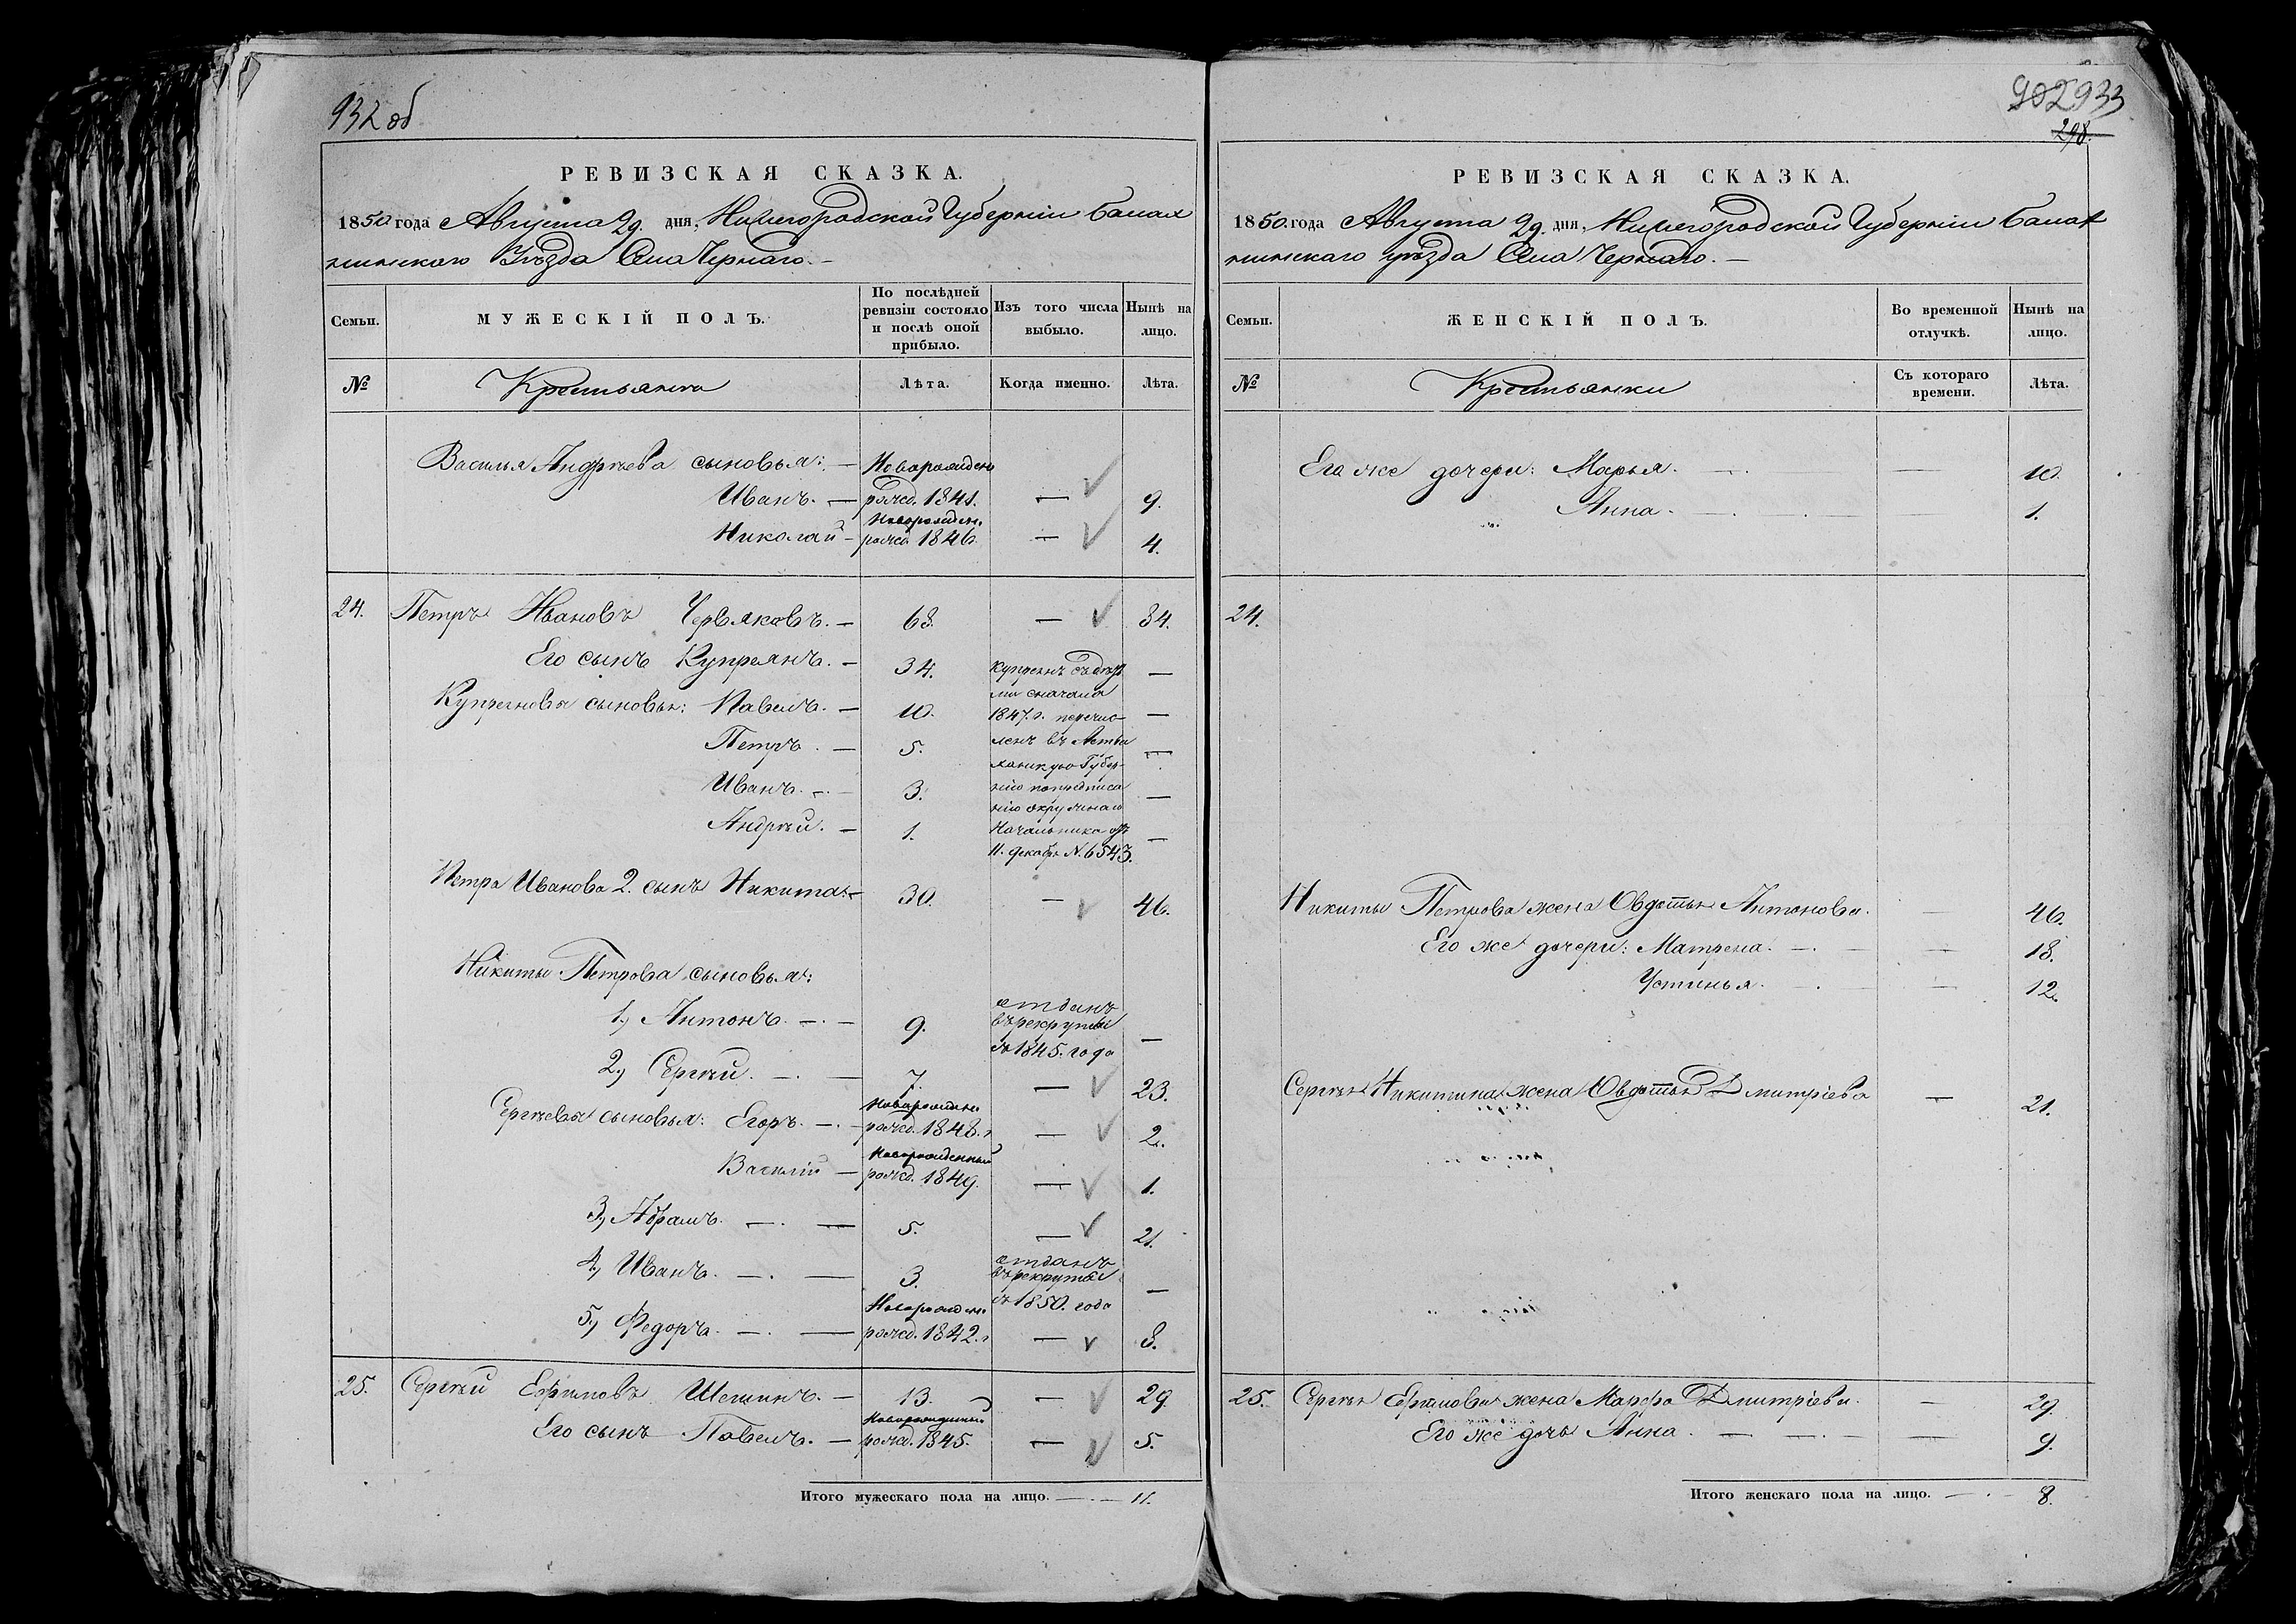 932 об
РЕВИЗСКАЯ СКАЗКА.
1850 года Августа 29. дня, Нижегородской Губерніи Балах
нинскаго Уѣзда Села Чернаго. —
Семьи.
МУЖЕСКІЙ ПОЛЪ.
По послѣдней
ревизіи состояло
и послѣ оной
прибыло.
Изъ того числа
выбыло.
Нынѣ на
лицо.
№
Крестьяна
Лѣта.
Когда именно.
Лѣта.
Василья Андреева сыновья: — Новорожден
Иванъ. — рожд. 1841. — 9.
Новорожден.
Николай — рожд. 1846 — 4.
24. Петръ Ивановъ Червяковъ. — 68. — 84.
Его сынъ Купреянъ. — 34. —
Купреянова сыновья: Павелъ. — 10. —
Петръ. — 5. —
Иванъ. — 3. —
Андрей. — 1. —
Купреянъ съ дѣть
ми сначала
1847. г. перечис
ленъ въ Астра
ханскую Губер-
нію по предписа
нію окружнаго
Начальника отъ
11. декабр. N. 6543.
Петра Иванова 2. сынъ Никита — 30. — 46.
Никиты Петрова сыновья:
1, Антонъ. — 9. —
отданъ
въ рекруты
съ 1845. года
2, Сергѣй. — 7. — 23.
Новорожден.
Сергѣевы сыновья: Егоръ. — рожд. 1848. г — 2.
Новорожденный
Василій — рожд. 1849. — 1.
3, Абрамъ. — 5. — 21.
4, Иванъ. — 3. —
отданъ
въ рекруты
съ 1850. года
Новорожден.
5, Федоръ. — рожд. 1842. г — 8.
25. Сергѣй Ефимовъ Шешинъ. — 13. — 29
Новорожденный
Его сынъ Павелъ. — рожд. 1845. — 5.
Итого мужескаго пола на лицо. — 11.
902 933
298.
РЕВИЗСКАЯ СКАЗКА.
1850. года Августа 29. дня, Нижегородской Губерніи Балах
нинскаго уѣзда Села Чернаго. —
Семьи.
ЖЕНСКІЙ ПОЛЪ.
Во временной
отлучкѣ.
Нынѣ на
лицо.
№
Крестьянки
Съ котораго
времени.
Лѣта.
Его же дочери: Марья. — 10.
Анна. — 1.
24.
Никиты Петрова жена Овдотья Антонова. — 46.
Его же дочери: Матрена. — 18.
Устинья. — 12.
Сергѣя Никитина жена Овдотья Дмитріева — 21.
25. Сергѣя Ефимова жена Марфа Дмитріева. — 29.
Его же дочь Анна. — 9.
Итого женскаго пола на лицо. — 8.